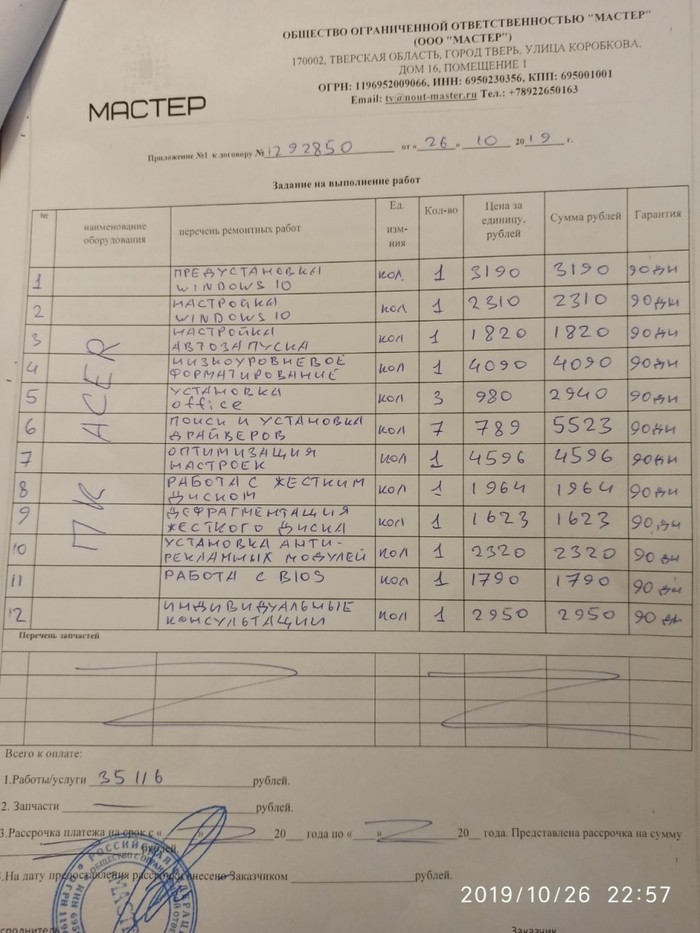 МАСТЕР
ОБЩЕСТВО ОГРАНИЧЕННОЙ ОТВЕТСТВЕННОСТЬЮ "МАСТЕР"
(ООО "МАСТЕР")
170002, ТВЕРСКАЯ ОБЛАСТЬ, ГОРОД ТВЕРЬ, УЛИЦА КОРОБКОВА,
ДОМ 16, ПОМЕЩЕНИЕ 1
ОГРН: 1196952009066, ИНН: 6950230356, КПП: 695001001
Email: tv@nout-master.ru Тел.: +78922650163
Приложение №1 к договору № 1292850 от «26» 10 2019 г.
Задание на выполнение работ
№ наименование оборудования перечень ремонтных работ Ед. изм-ния Кол-во Цена за единицу, рублей Сумма рублей Гарантия
ПК ACER
1 ПРЕДУСТАНОВКА WINDOWS 10 кол. 1 3190 3190 90 дн
2 НАСТРОЙКА WINDOWS 10 кол 1 2310 2310 90 дн
3 НАСТРОЙКА АВТОЗАПУСКА кол 1 1820 1820 90 дн
4 НИЗКОУРОВНЕВОЕ ФОРМАТИРОВАНИЕ кол 1 4090 4090 90 дн
5 УСТАНОВКА office кол 3 980 2940 90 дн
6 ПОИСК И УСТАНОВКА ДРАЙВЕРОВ кол 7 789 5523 90 дн
7 ОПТИМИЗАЦИЯ НАСТРОЕК кол 1 4596 4596 90 дн
8 РАБОТА С ЖЕСТКИМ ДИСКОМ кол 1 1964 1964 90 дн
9 ДЕФРАГМЕНТАЦИЯ ЖЕСТКОГО ДИСКА кол 1 1623 1623 90 дн
10 УСТАНОВКА АНТИ-РЕКЛАМНЫХ МОДУЛЕЙ кол 1 2320 2320 90 дн
11 РАБОТА С BIOS кол 1 1790 1790 90 дн
12 ИНДИВИДУАЛЬНЫЕ КОНСУЛЬТАЦИИ кол 1 2950 2950 90 дн
Перечень запчастей
Всего к оплате:
1.Работы/услуги 35116 рублей.
2. Запчасти рублей.
3.Рассрочка платежа на срок с « » 20 года по « » 20 года. Представлена рассрочка на сумму
рублей.
.На дату предоставления рассрочки внесено Заказчиком рублей.
Заказчик
2019/10/26 22:57